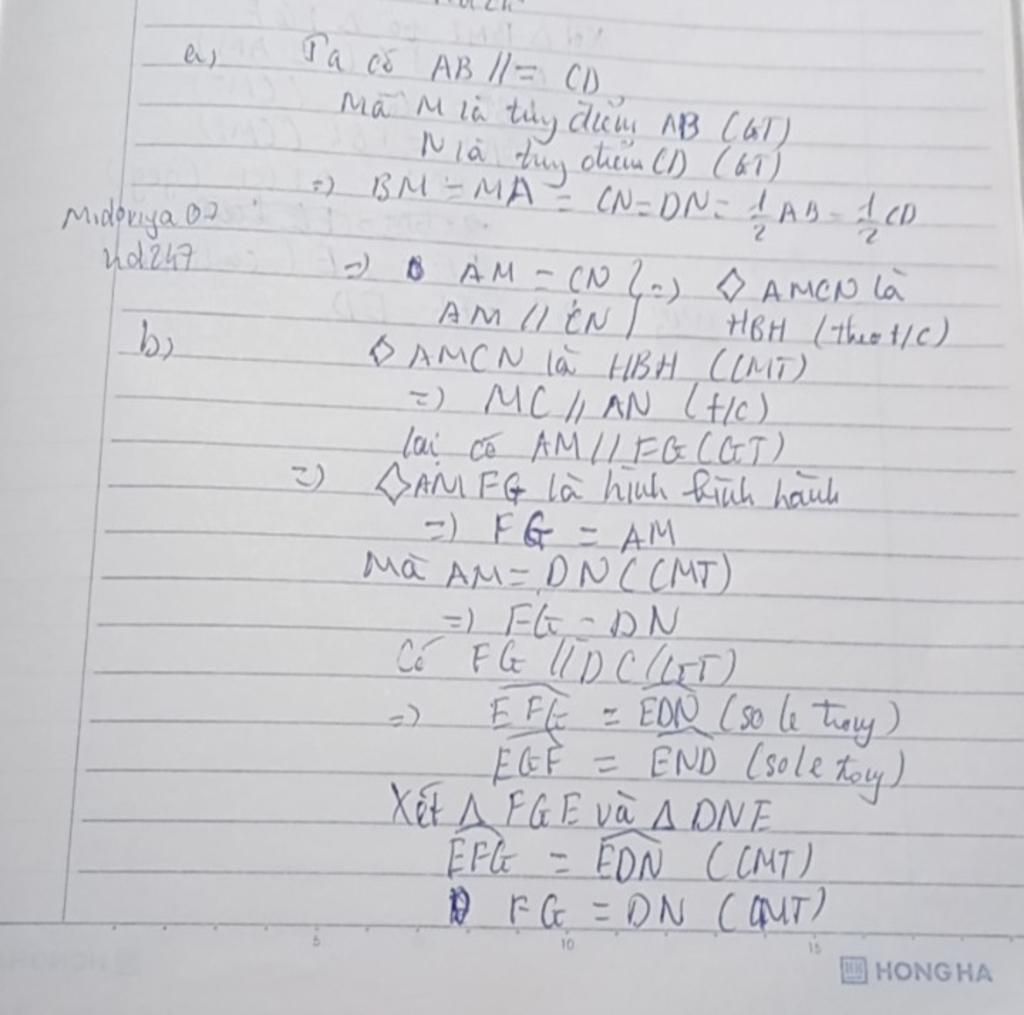 a, Ta có AB //= CD
Mà M là tủy điểm AB (GT)
N là tủy điểm CD (GT)
=> BM = MA = CN = DN = 1/2 AB = 1/2 CD
Midoriya 02
nd247
=> AM = CN } => ◇ AMCN là
AM // CN } HBH (theo t/c)
b, ◇ AMCN là HBH (CMT)
=> MC // AN (t/c)
lại có AM // FG (GT)
=> ◇ AMFG là hình bình hành
=> FG = AM
Mà AM = DN (CMT)
=> FG = DN
Có FG // DC (GT)
=> EFG = EDN (so le trong)
EGF = END (so le trong)
Xét Δ FGE và Δ DNE
EFG = EDN (CMT)
FG = DN (CMT)
5 10 15
HONG HA